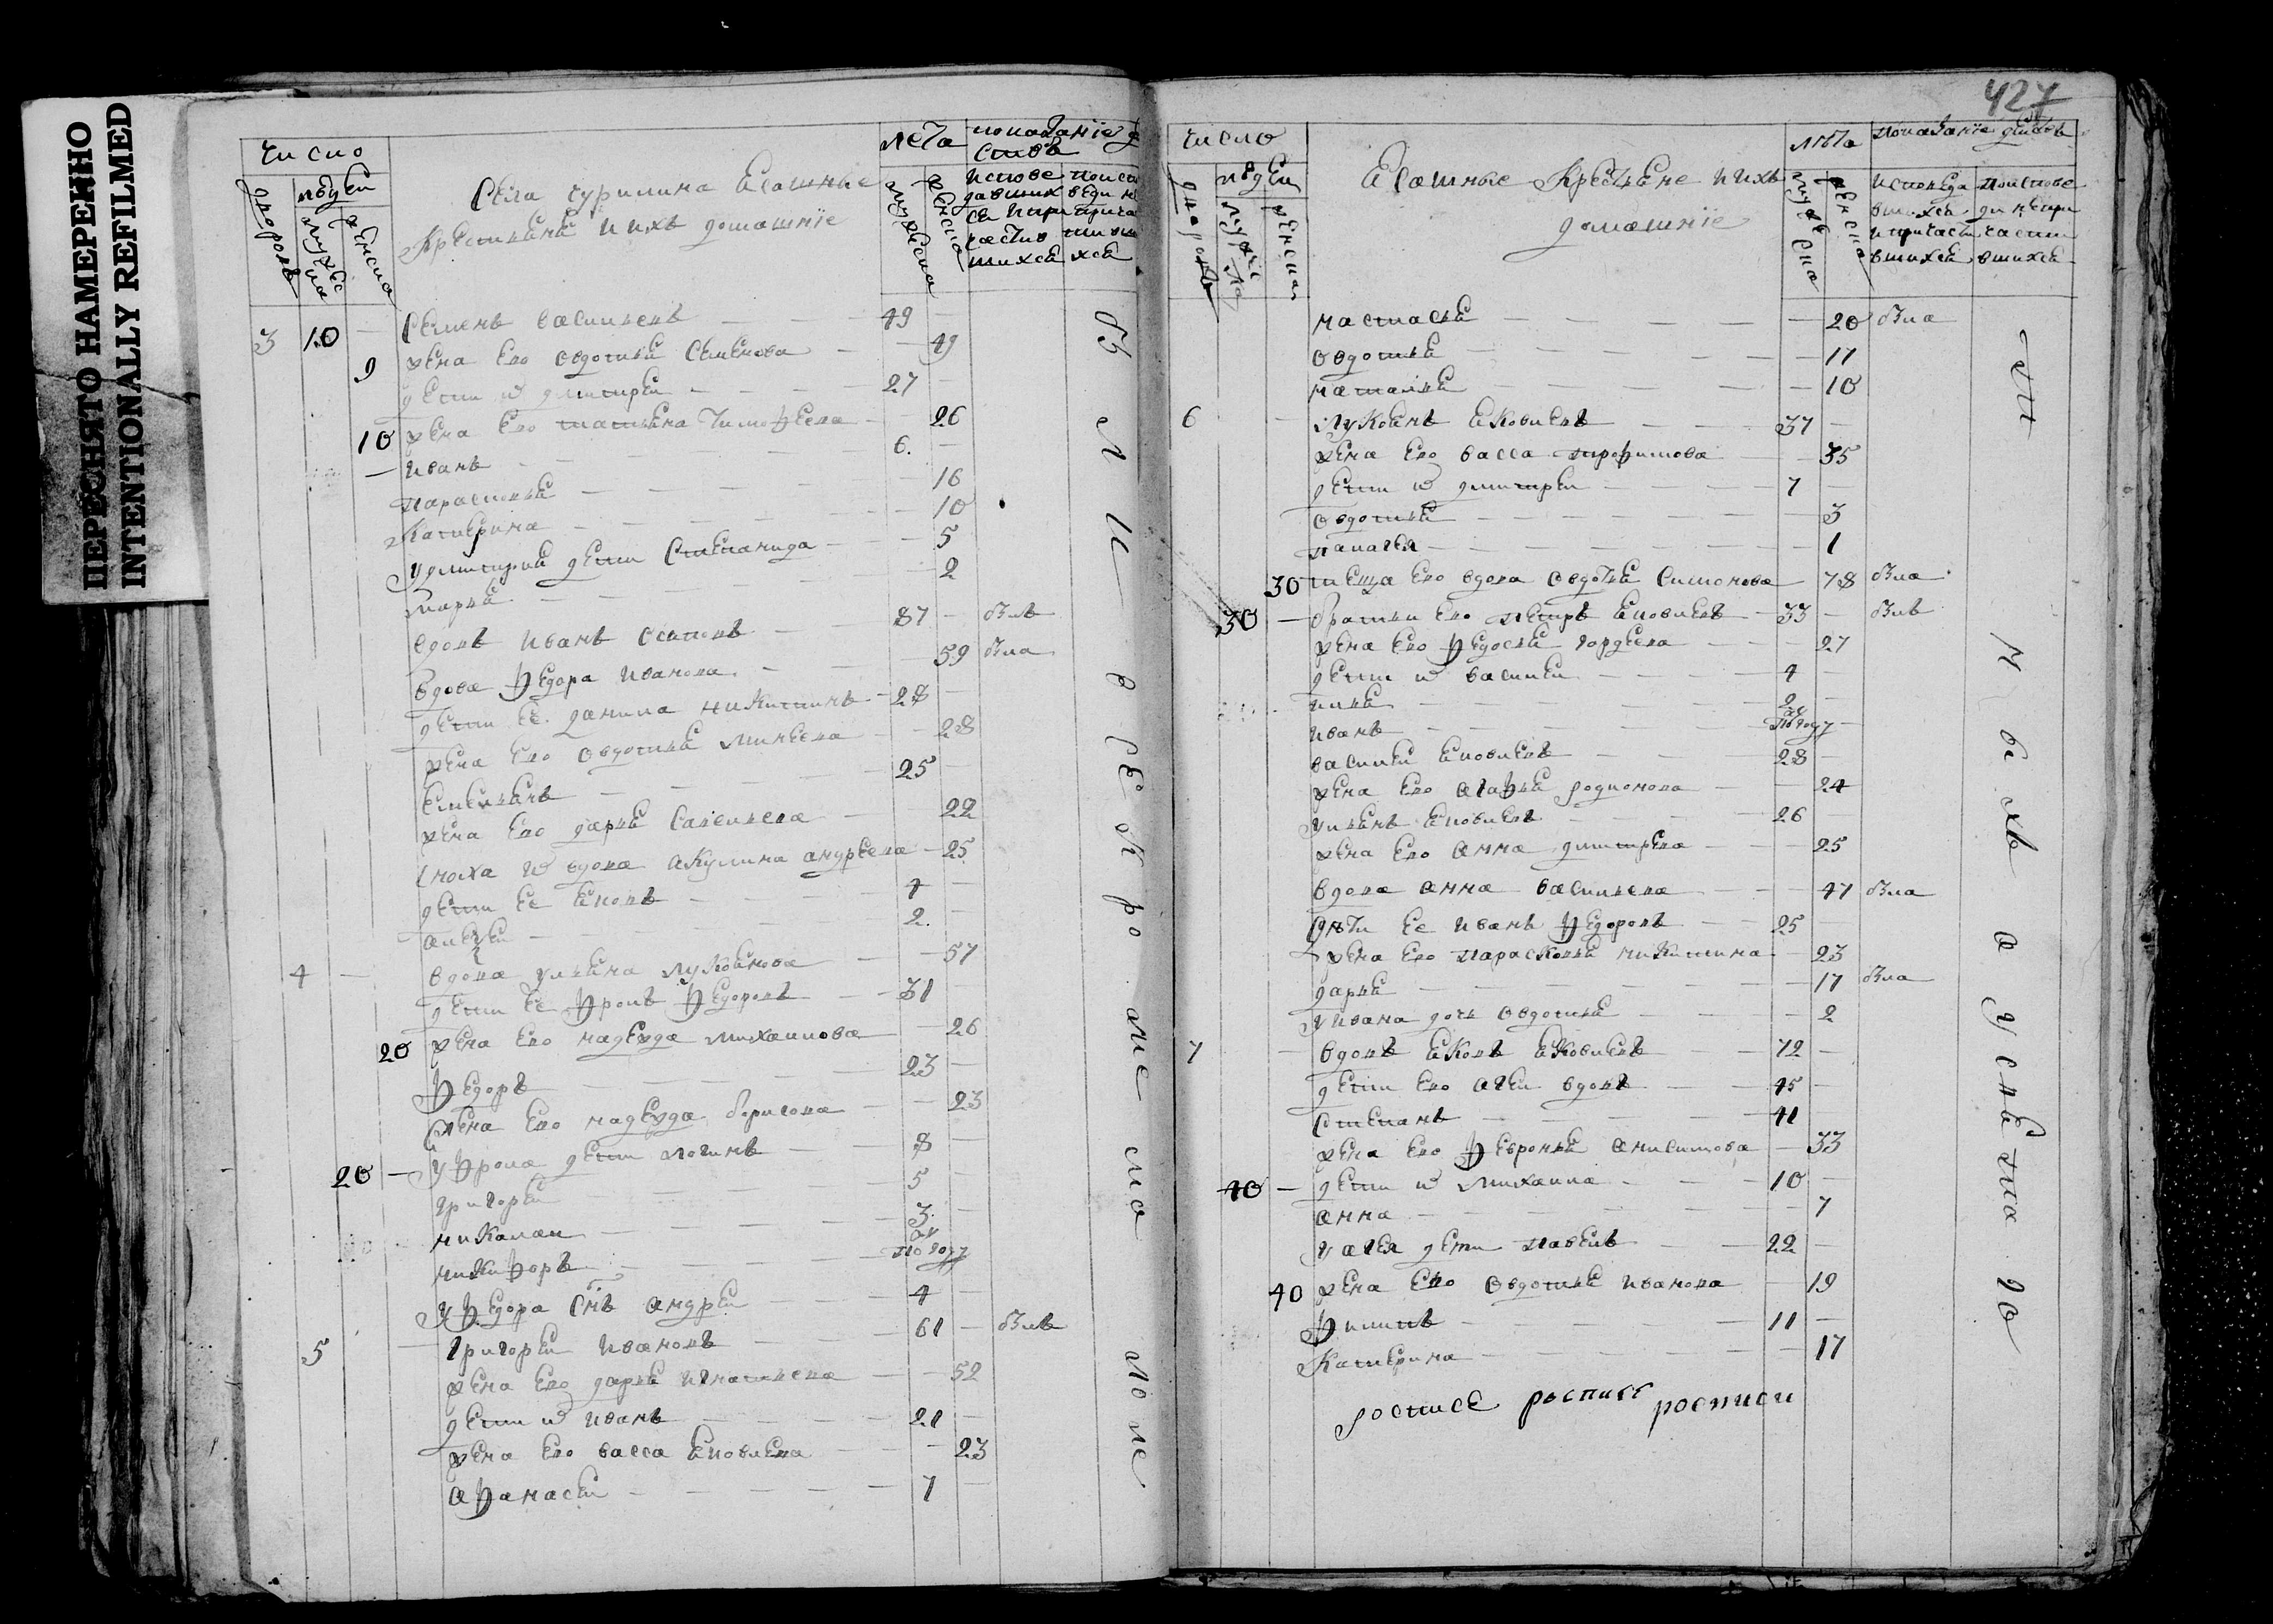 ПЕРЕСНЯТО НАМЕРЕННО
INTENTIONALLY REFILMED
427
число
людеи
дворовъ
мужес ка
женска
Села чурилина ясашные
крестьяня и ихъ домашнїе
лета
мужеска
женска
показанїе д
ствъ
испове
давших
ся и при
частив
шихся
3 10 — Семенъ васильевъ — 49 —
9 жена ево овдотья Семенова — 49
дети и дмитреи — 27
10 жена ево татьяна тимофеева — 26
— иванъ — 6. —
парасковья — 16
катерина — 10
у дмитрия дети Степанида — 5
марья — 2
вдовъ иванъ осиповъ — 87 — былъ
вдова федора иванова — 59 была
дети ее данила никитинъ — 28
жена ево овдотья минеева — 28
емельянъ — 25
жена ево дарья Савельева — 22
Сноха и вдова акулина андреева — 25
дети ее яковъ — 4 —
алекеи — 2. —
4 — вдова ульяна лукоянова — 57
дети ее фролъ федоровъ — 31
20 жена ево надежда михаилова — 26
федоръ — 23
жена ево надежда борисова — 23
20 — у фрола дети логинъ — 8
григореи — 5
николаи — 3.
никифоръ — по году
у федора снъ андреи — 4
5 — григореи ивановъ — 61 — былъ
жена ево дарья игнатьева — 52
дети и иванъ — 21
жена ево васса яковлева — 23
афанасеи — 7
число
людеи
дворовъ
мужес ка
женская
ясашные крестьяне и ихъ
домашнїе
лѣта
мужеска
женска
показанїе действъ
исповеда
вшихся
и причасти
вшихся
поиспове
ди непри
части
вшихся
настасья — 20 была
овдотья — 17
наталья — 10
6 — лукоянъ яковлевъ — 37 —
жена ево васса трофимова — 35
дети и дмитреи — 7
овдотья — 3
палагея — 1
30 теща ево вдова овдотья Симонова — 78 была
30 — братья ево петръ яковлевъ — 33 — былъ
жена ево федосья гордеева — 27
дети и васили — 4
илья — 2
иванъ — полгоду —
василеи яковлевъ — 28
жена ево агафья родионова — 24
ульянъ яковлевъ — 26
жена ево анна дмитреева — 25
вдова анна васильева — 47 была
дѣти ее иванъ федоровъ — 25
жена ево парасковья никитина — 23
дарья — 17 была
у ивана дочь овдотья — 2
7 — вдовъ яковъ яковлевъ — 72 —
дети ево агеи вдовъ — 45
степанъ — 41
жена ево февронья анисимова — 33
40 — дети и михаила — 10
анна — 7
у агея дети павелъ — 22
40 жена ево овдотья иванова — 19
филипъ — 11 —
катерина — 17
росписе роспись росписи